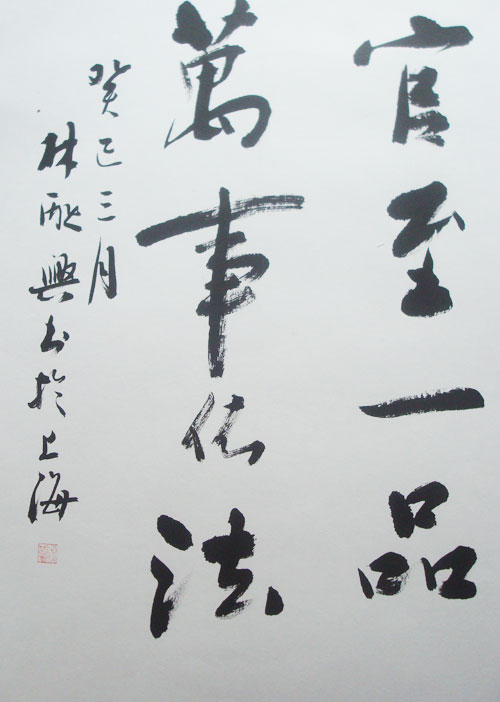 官至一品
萬事依法
癸巳三月
林耐興书於上海